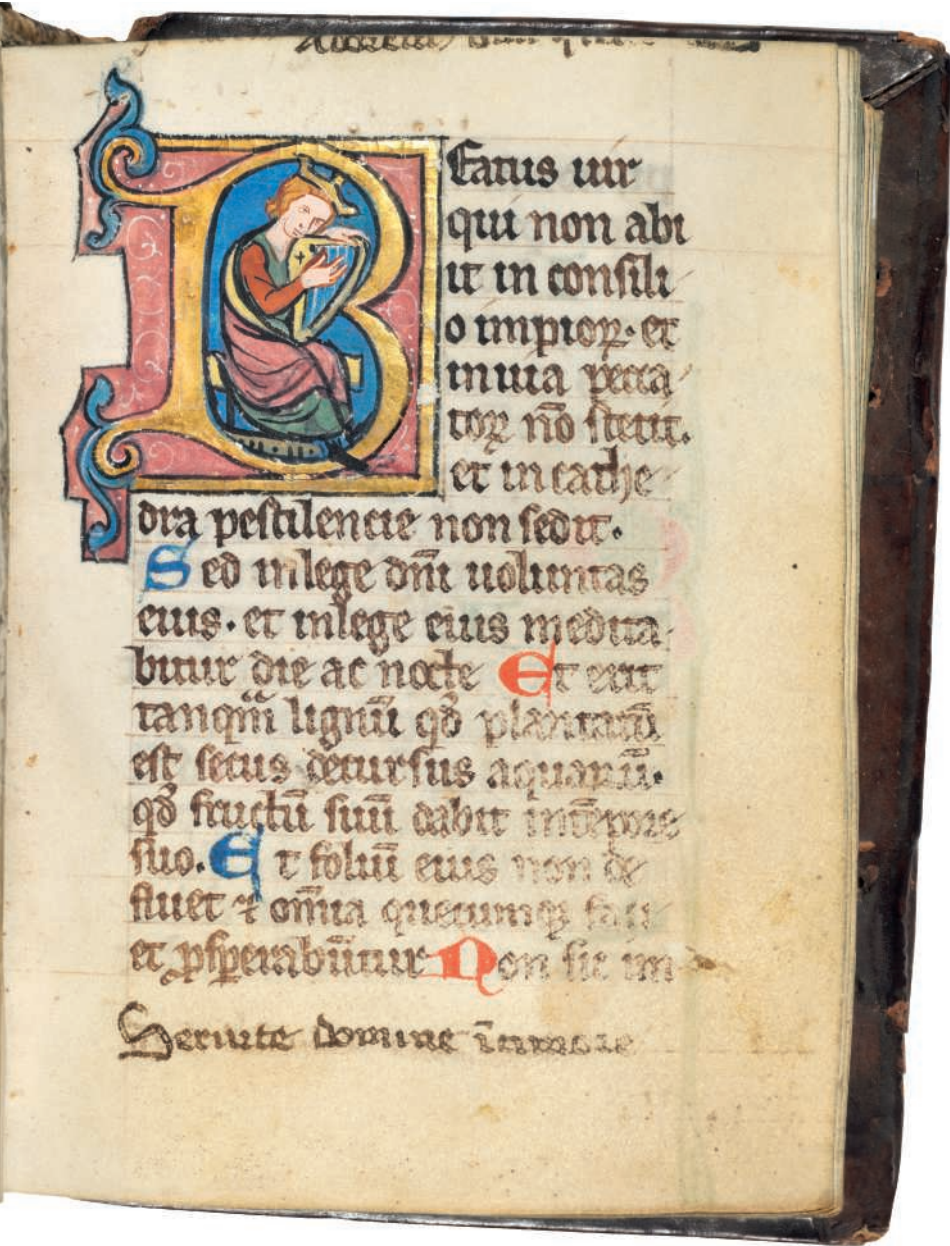 Beatus uir
qui non abi
it in consili
o impioꝝ· et
in uia pecca
toꝝ nō stetit.
et in cathe
dra pestilencie non sedit·
Sed in lege dn̄i uoluntas
eius· et in lege eius medita
bitur die ac nocte Et erit
tanqm̄ lignū qđ plantatū
est secus decursus aquarū·
qđ fructū suū dabit in tēpore
suo. Et foliū eius non de
fluet ⁊ om̄ia quecumqꝫ faci
et ꝓsꝑabūtur Non sic im
Seruite domine in